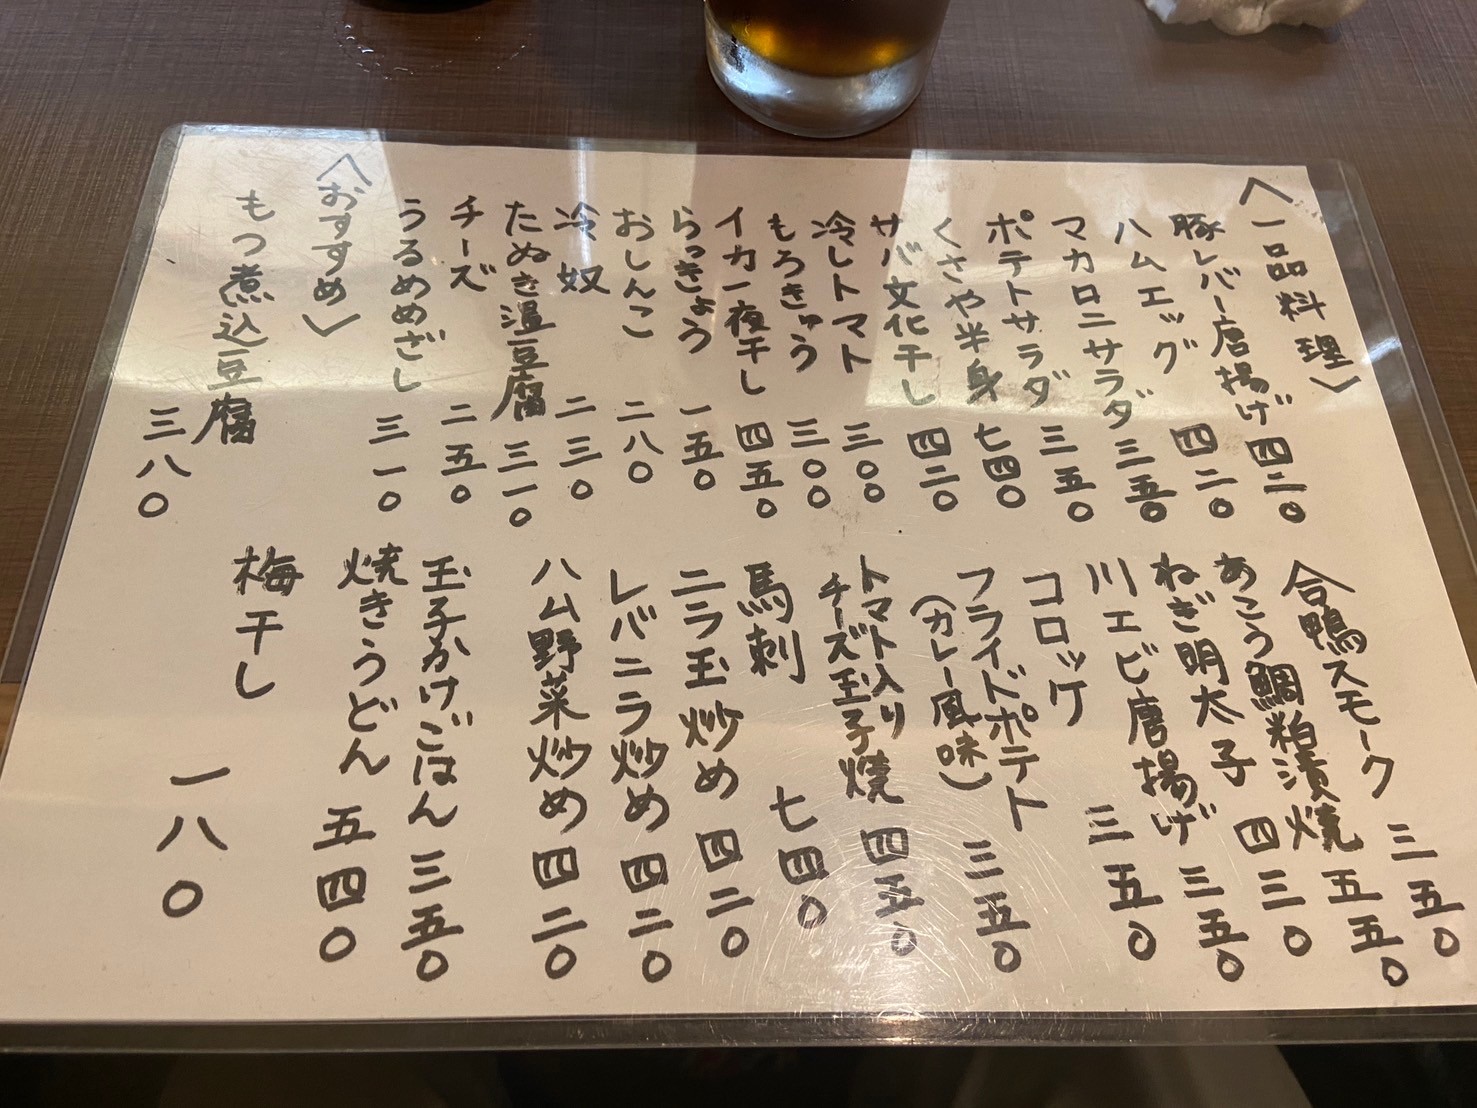 〈一品料理〉
豚レバー唐揚げ 四二〇
ハムエッグ 四二〇
マカロニサラダ 三五〇
ポテトサラダ 三五〇
くさや半身 七四〇
サバ文化干し 四二〇
冷しトマト 三〇〇
もろきゅう 三〇〇
イカ一夜干し 四五〇
らっきょう 一五〇
おしんこ 二八〇
冷奴 二三〇
たぬき温豆腐 三一〇
チーズ 二五〇
うるめめざし 三一〇
〈おすすめ〉
もつ煮込豆腐 三八〇
合鴨スモーク 三五〇
あこう鯛粕漬焼 五五〇
ねぎ明太子 四三〇
川エビ唐揚げ 三五〇
コロッケ 三五〇
フライドポテト
(カレー風味) 三五〇
トマト入り
チーズ玉子焼 四五〇
馬刺 七四〇
ニラ玉炒め 四二〇
レバニラ炒め 四二〇
ハム野菜炒め 四二〇
玉子かけごはん 三五〇
焼きうどん 五四〇
梅干し 一八〇